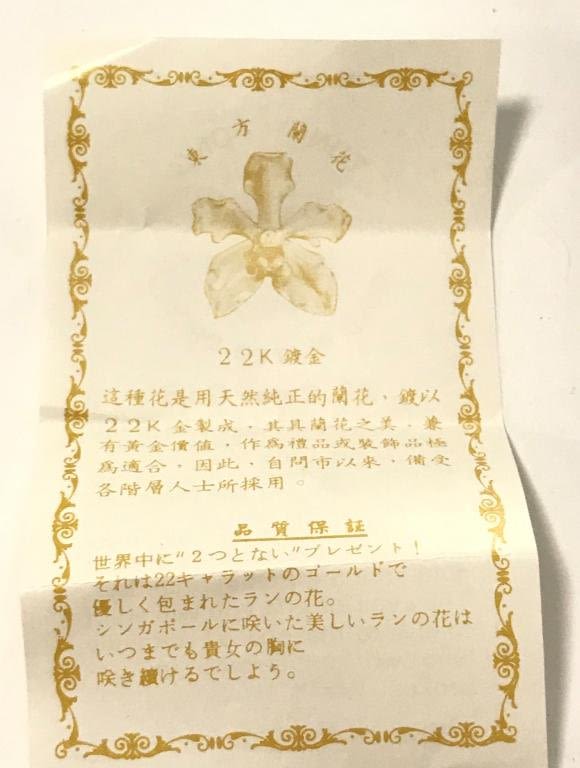 東方蘭花
22K 鍍金
這種花是用天然純正的蘭花、鍍以
22K 金製成．其具蘭花之美．兼
有黃金價值，作爲禮品或裝飾品極
爲適合．因此．自問市以來，備受
各階層人士所採用。
品質保証
世界中に“2つとない”プレゼント！
それは22キャラットのゴールドで
優しく包まれたランの花。
シンガポールに咲いた美しいランの花は
いつまでも貴女の胸に
咲き續けるでしよう。